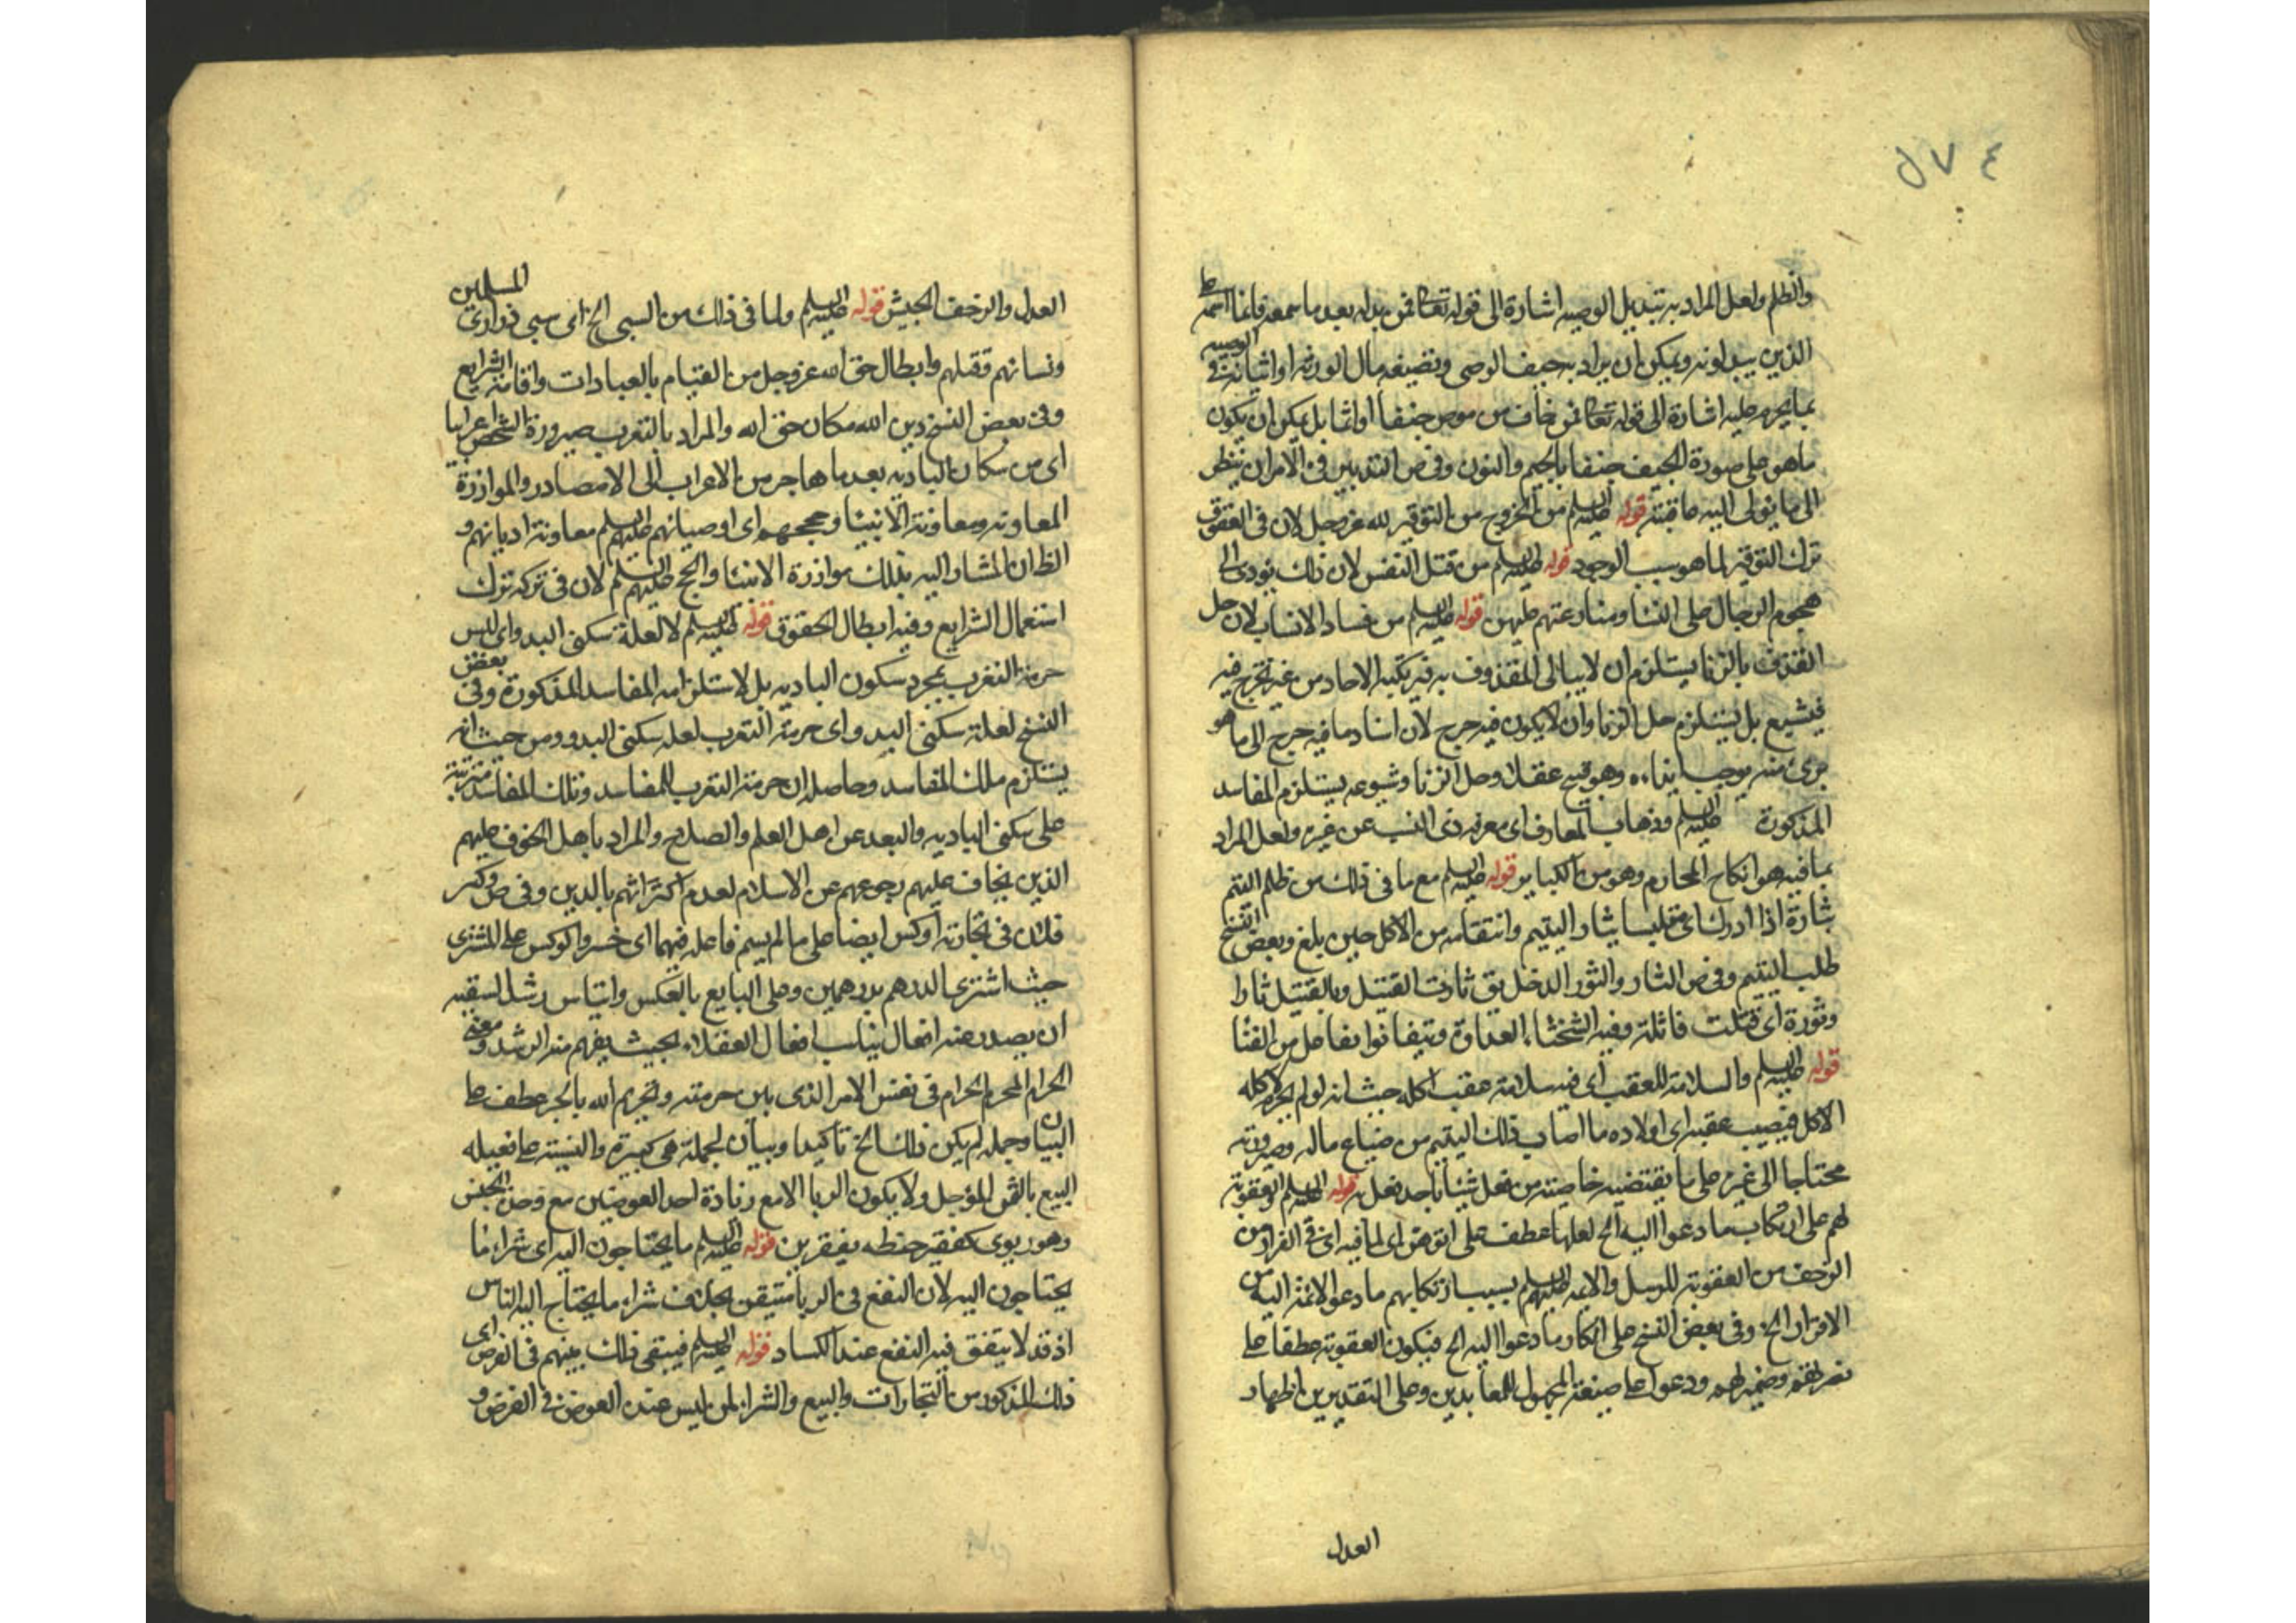 ٤ ٧ ل
والظلم ولعل المراد به تبديل الوصية اشارة الى قوله تعالى فمن بدله بعد ما سمعه فانما اثمه على
الذين يبدلونه ويمكن ان يراد به حيف الوصى وتضييعه مال الورثة او اثباته في الوصية
بما يحرم عليه اشارة الى قوله تعالى فمن خاف من موص جنفا او اثما بل يمكن ان يكون
ما هو على صورة الحيف جنفا بالجيم والنون وفى ص التدبير فى الامر ان تنظر
الى ما يؤل اليه عاقبته قوله عليه السلم من الخروج من التوقير لله عز وجل لان فى العقوق
ترك التوقير لما هو سبب الوجود قوله عليه السلم من قتل النفس لان ذلك يؤدى الى
هجوم الرجال على النسا ومنازعتهم عليهن قوله عليه السلم من فساد الانساب لان حل
القذف بالزنا يستلزم ان لا يبالى المقذوف به فيرتكبه الاحاد من غير تحرج فيه
فيشيع بل يستلزم حل الزنا وان لا يكون فيه حرج لان اسناد ما فيه حرج الى ما هو
برئ منه يوجب ايذاءه وهو قبيح عقلا وحل الزنا وشيوعه يستلزم المفاسد
المذكورة عليه السلم وذهاب المعارف اى معرفة ذى النسب عن غيره ولعل المراد
بما فيه هو انكاح المحارم وهو من الكباير قوله عليه السلم مع ما فى ذلك من ظلم اليتيم
بثاره اذا ادرك اى متلبسا بثار اليتيم وانتقامه من الاكل حين بلغ وبعض النسخ
طلب اليتيم وفى ص الثار والثور الدخل يق ثارت القتيل وبالقتيل ثارا
وثورة اى قتلت قاتله وفيه الشحناء العداوة وتفانوا تفاعل من الفناء
قوله عليه السلم والسلامة للعقب اى فيه سلامة عقب اكله حيث انه لو لم يحرم اكله
الاكل فيصيب عقبه اى اولاده ما اصاب ذلك اليتيم من ضياع ماله وصيرورته
محتاجا الى غيره على ما يقتضيه خاصيته من فعل شيئا باحد فعل به قوله عليه السلم والعقوبة
لهم على ارتكاب ما دعوا اليه الخ لعلها عطف على اى لما فيه اى في الفرار من
الزحف من العقوبة للرسل والائمة عليهم السلم بسبب ارتكابهم ما دعوا لائمة اليه من
الاقرار الخ وفى بعض النسخ على انكار ما دعوا اليه الخ فيكون العقوبة عطفا على
نصرتهم وضمير لهم ودعوا على صيغة المجهول للمعابدين وعلى التقديرين اظهار
العدل
العدل والزحف الجيش قوله عليه السلم ولما فى ذلك من السبى الخ اى سبى ذرارى المسلمين
ونسائهم وقتلهم وابطال حق الله عز وجل من القيام بالعبادات واقامة الشرايع
وفى بعض النسخ دين الله مكان حق الله والمراد بالتعرب صيرورة الشخص اعرابيا
اى من سكان البادية بعد ما هاجر من الاعراب الى الامصار والموازرة
المعاونة ومعاونة الانبيا وحججهم اى اوصيائهم عليهم السلم معاونة اديانهم و
الظ ان المشار اليه بذلك موازرة الانبيا والحجج عليهم السلم لان فى تركه ترك
استعمال الشرايع وفيه ابطال الحقوق قوله عليه السلم لا لعلة سكنى البدو اى ليس
حرمة التعرب بمجرد سكون البادية بل لاستلزامه المفاسد المذكورة وفى بعض
النسخ لعلة سكنى البدو اى حرمة التعرب لعلة سكنى البدو ومن حيث انه
يستلزم تلك المفاسد وحاصله ان حرمة التعرب للمفاسد وتلك المفاسد مترتبة
على سكنى البادية والبعد عن اهل العلم والصلاح والمراد باهل الخوف عليهم
الذين يخاف عليهم رجوعهم عن الاسلام لعدم اكتراثهم بالدين وفى ص وكس
فلان فى تجارته اوكس ايضا على ما لم يسم فاعله فيهما اى خسر والوكس على المشترى
حيث اشترى الدرهم بدرهمين وعلى البايع بالعكس وايناس رشد السفيه
ان يصدر عنه افعال يناسب افعال العقلاء بحيث يفهم منه الرشد ومعنى
الحرام المحرم الحرام فى نفس الامر الذى بين حرمته وتحريم الله بالجر عطف على
البيان وجمله لم يكن ذلك الخ تاكيدا وبيان لجملة هى كبيرة والنسيئة على فعيله
البيع بالثمن المؤجل ولا يكون الربا الا مع زيادة احد العوضين مع وحدة الجنس
وهو ربوى كقفيز حنطه بقفيزين قوله عليه السلم ما يحتاجون اليه اى شراء ما
يحتاجون اليه لان النفع فى الربا متيقن بخلاف شراء ما يحتاج اليه الناس
اذ قد لا يتفق فيه النفع عند الكساد قوله عليه السلم فيبقى ذلك بينهم فى القرض اى
ذلك المذكور من التجارات والبيع والشراء لمن ليس عنده العوض فى القرض و